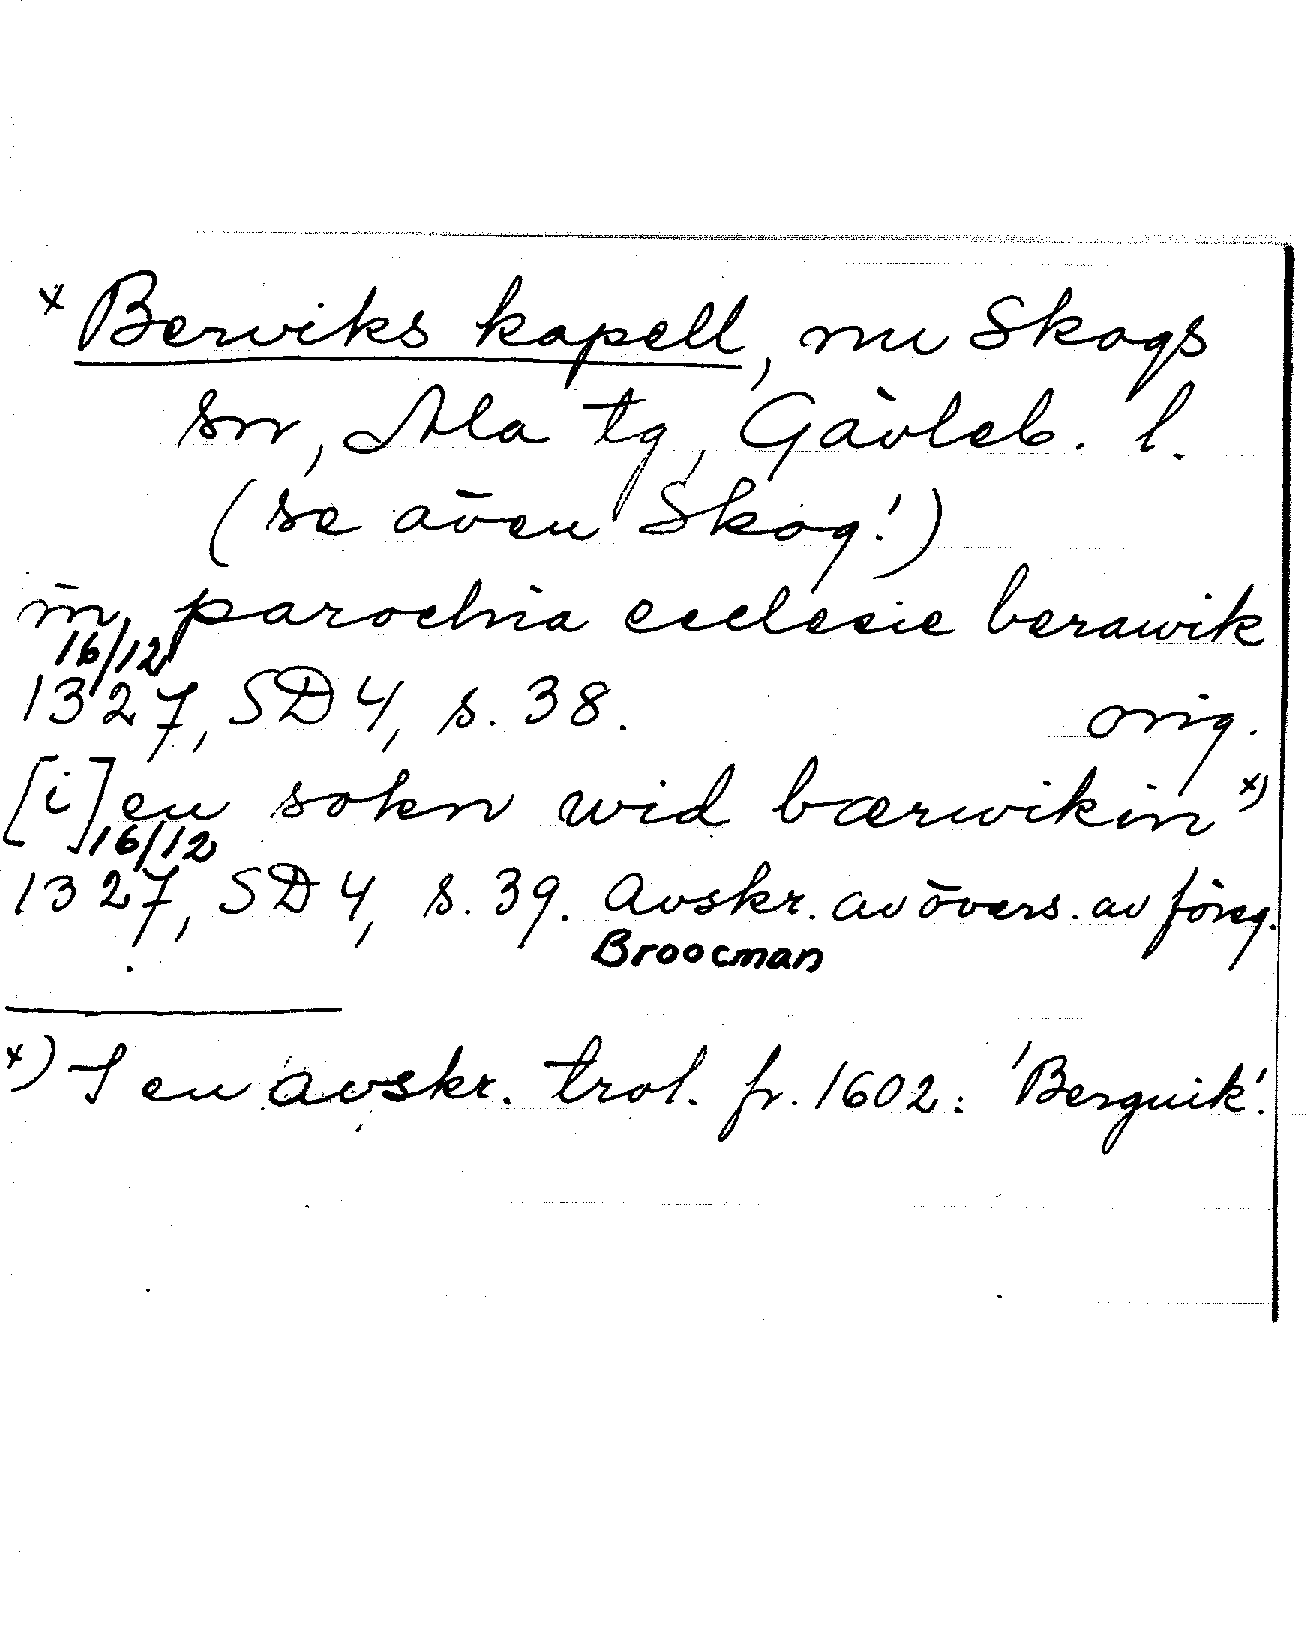 × Berviks kapell, nu Skogs
sn, Ala tg, Gävleb. l.
(se även Skog!)
in parochia ecclesie berawik
16/12
1327, SD 4, s. 38. orig.
[i] en sokn wid bærwikin ×)
16/12
1327, SD 4, s. 39. Avskr. av övers. av föreg.
Broocman
×) I en avskr. trol. fr. 1602: 'Berguik'.